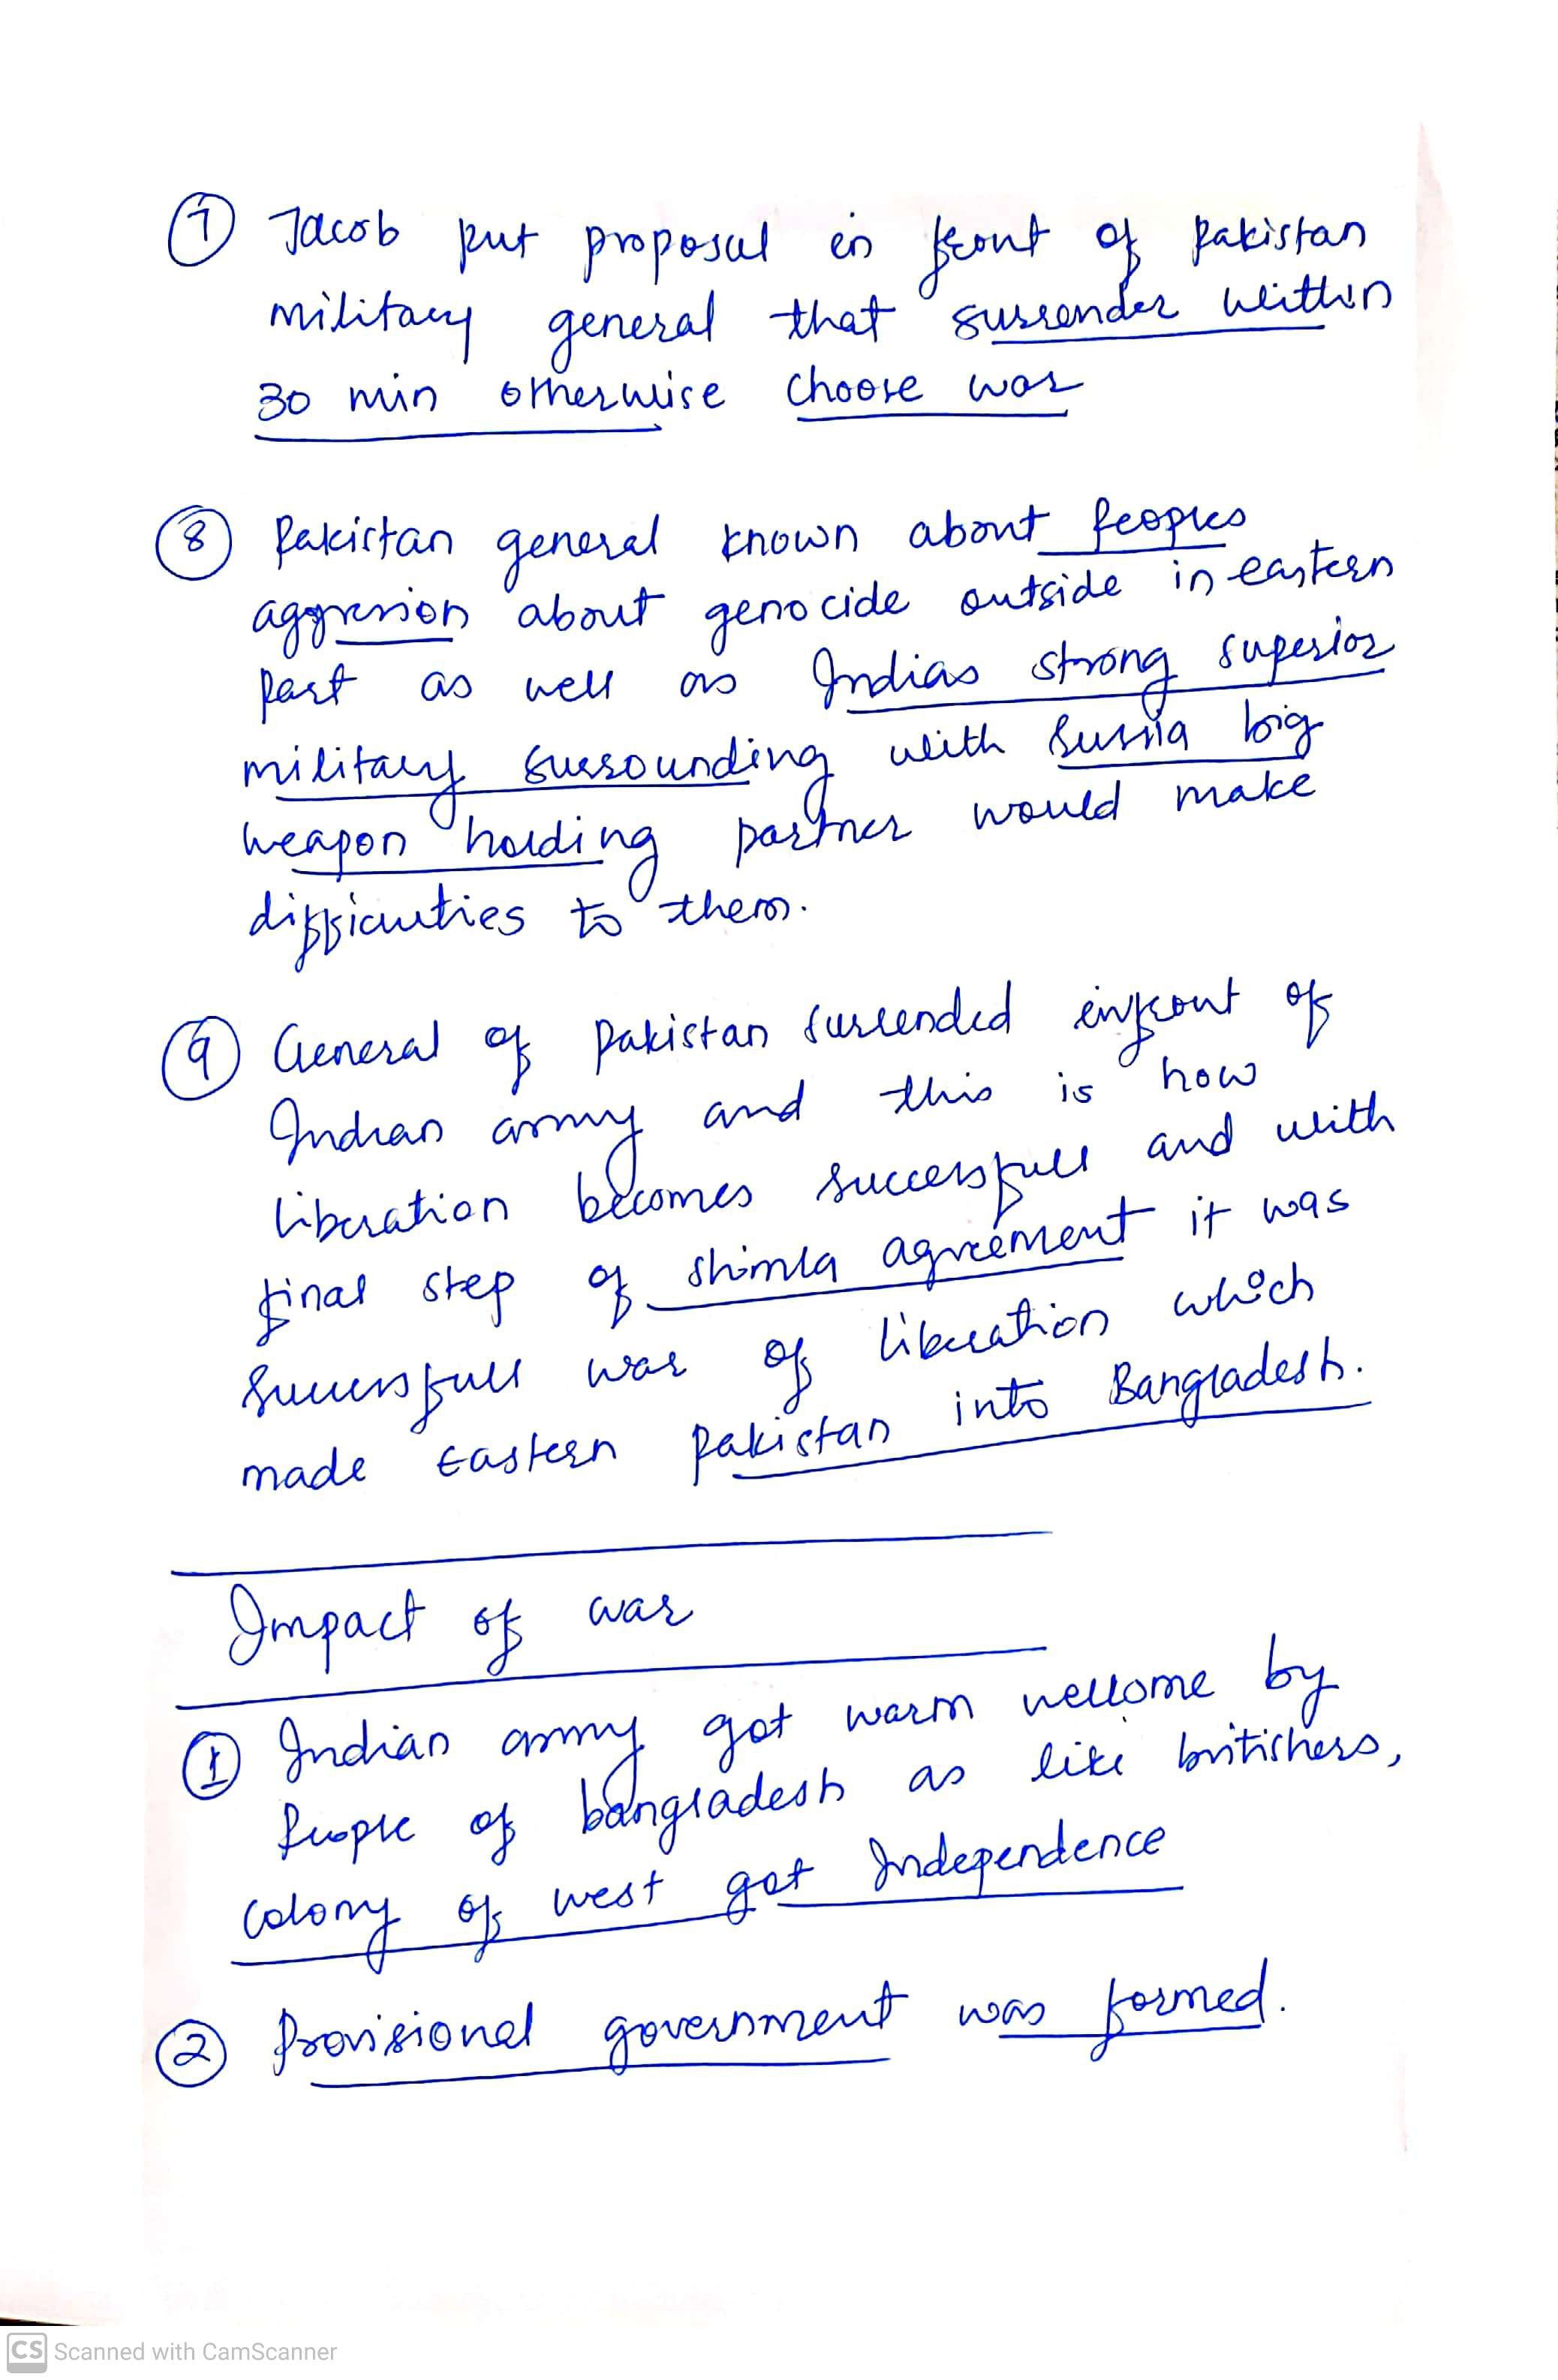 7 Jacob put proposal in front of Pakistan
military general that surrender within
30 min otherwise choose war
8 Pakistan general known about peoples
aggression about genocide outside in eastern
part as well as Indias strong superior
military surrounding with Russia big
weapon holding partner would make
difficulties to them.
9 General of Pakistan surrended infront of
Indian army and this is how
liberation becomes successfull and with
final step of shimla agreement it was
successfull war of liberation which
made Eastern Pakistan into Bangladesh.
Impact of war
1 Indian army got warm wellome by
People of bangladesh as like britishers,
colony of west got Independence
2 Provisional government was formed.
CS Scanned with CamScanner